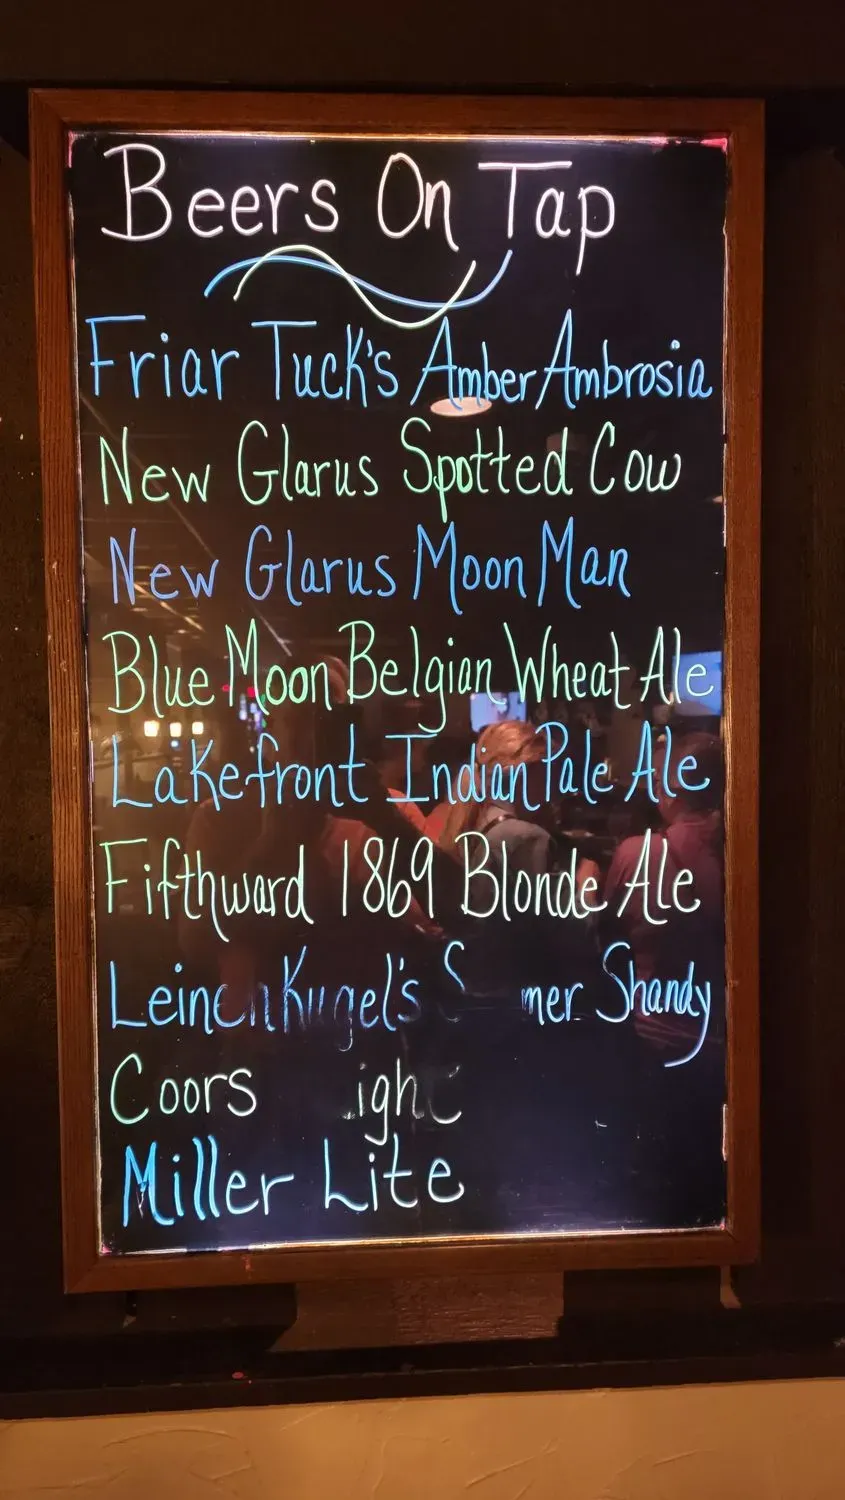 Beers On Tap
Friar Tuck's Amber Ambrosia
New Glarus Spotted Cow
New Glarus Moon Man
Blue Moon Belgian Wheat Ale
Lakefront Indian Pale Ale
Fifthward 1869 Blonde Ale
Leinenkugel's Shandy
Coors
Miller Lite